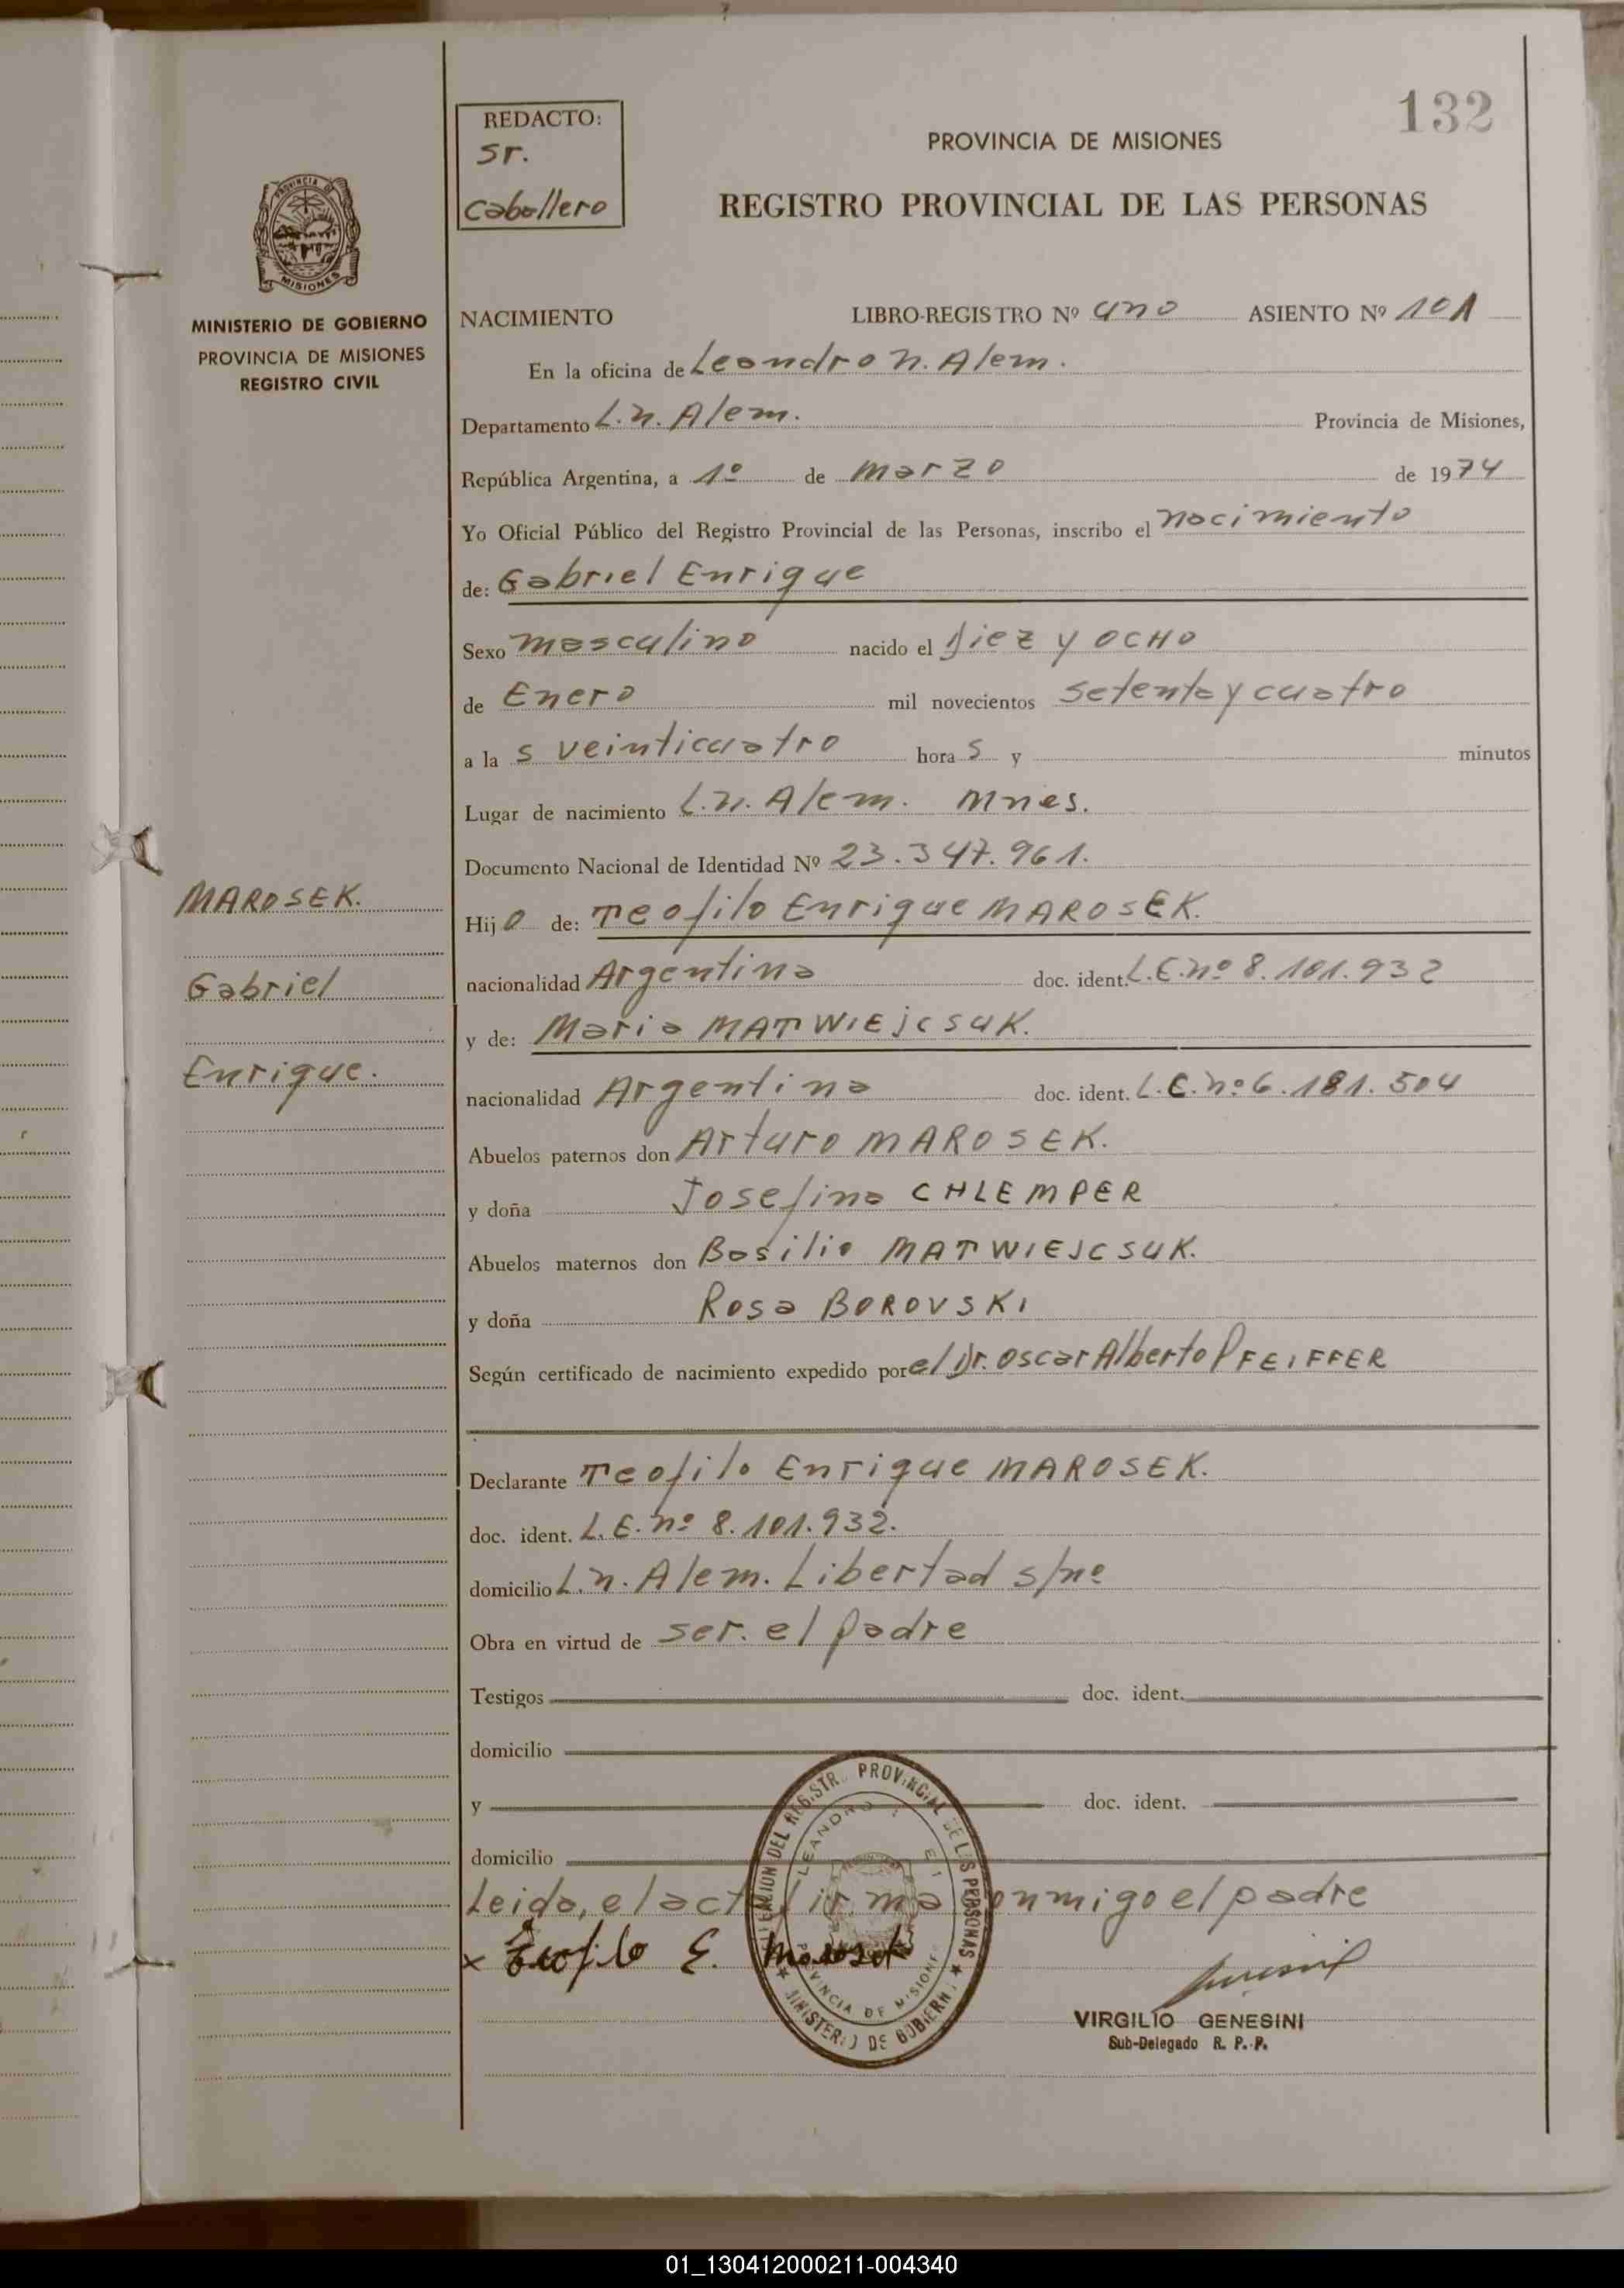 132
REDACTO:
Sr.
Caballero
PROVINCIA DE MISIONES
REGISTRO PROVINCIAL DE LAS PERSONAS
PROVINCIA DE
MISIONES
MINISTERIO DE GOBIERNO
PROVINCIA DE MISIONES
REGISTRO CIVIL
NACIMIENTO LIBRO-REGISTRO Nº uno ASIENTO Nº 101
En la oficina de Leandro N. Alem.
Departamento L.N. Alem. Provincia de Misiones,
República Argentina, a 1º de Marzo de 1974
Yo Oficial Público del Registro Provincial de las Personas, inscribo el nacimiento
de: Gabriel Enrique
Sexo masculino nacido el diez y OCHO
de Enero mil novecientos setenta y cuatro
a la s veinticuatro hora s y minutos
Lugar de nacimiento L.N. Alem. Mnes.
Documento Nacional de Identidad Nº 23.347.961.
MAROSEK.
Gabriel
Enrique.
Hijo de: Teofilo Enrique MAROSEK.
nacionalidad Argentina doc. ident. L.E. nº 8.101.932
y de: Maria MATWIEJCSUK.
nacionalidad Argentina doc. ident. L.C. nº 6.181.504
Abuelos paternos don Arturo MAROSEK.
y doña Josefina CHLEMPER
Abuelos maternos don Basilio MATWIEJCSUK.
y doña Rosa BOROVSKI
Según certificado de nacimiento expedido por el Dr. Oscar Alberto PFEIFFER
Declarante Teofilo Enrique MAROSEK.
doc. ident. L.E. nº 8.101.932.
domicilio L.N. Alem. Libertad s/nº
Obra en virtud de ser. el padre
Testigos doc. ident.
domicilio
y doc. ident.
domicilio
Leida, el acta firma conmigo el padre
x Teofilo E. Marosek
DELEGACION DEL REGISTRO PROVINCIAL DE LAS PERSONAS
MINISTERIO DE GOBIERNO
LEANDRO
PROVINCIA DE MISIONES
VIRGILIO GENESINI
Sub-Delegado R. P. P.
01_130412000211-004340